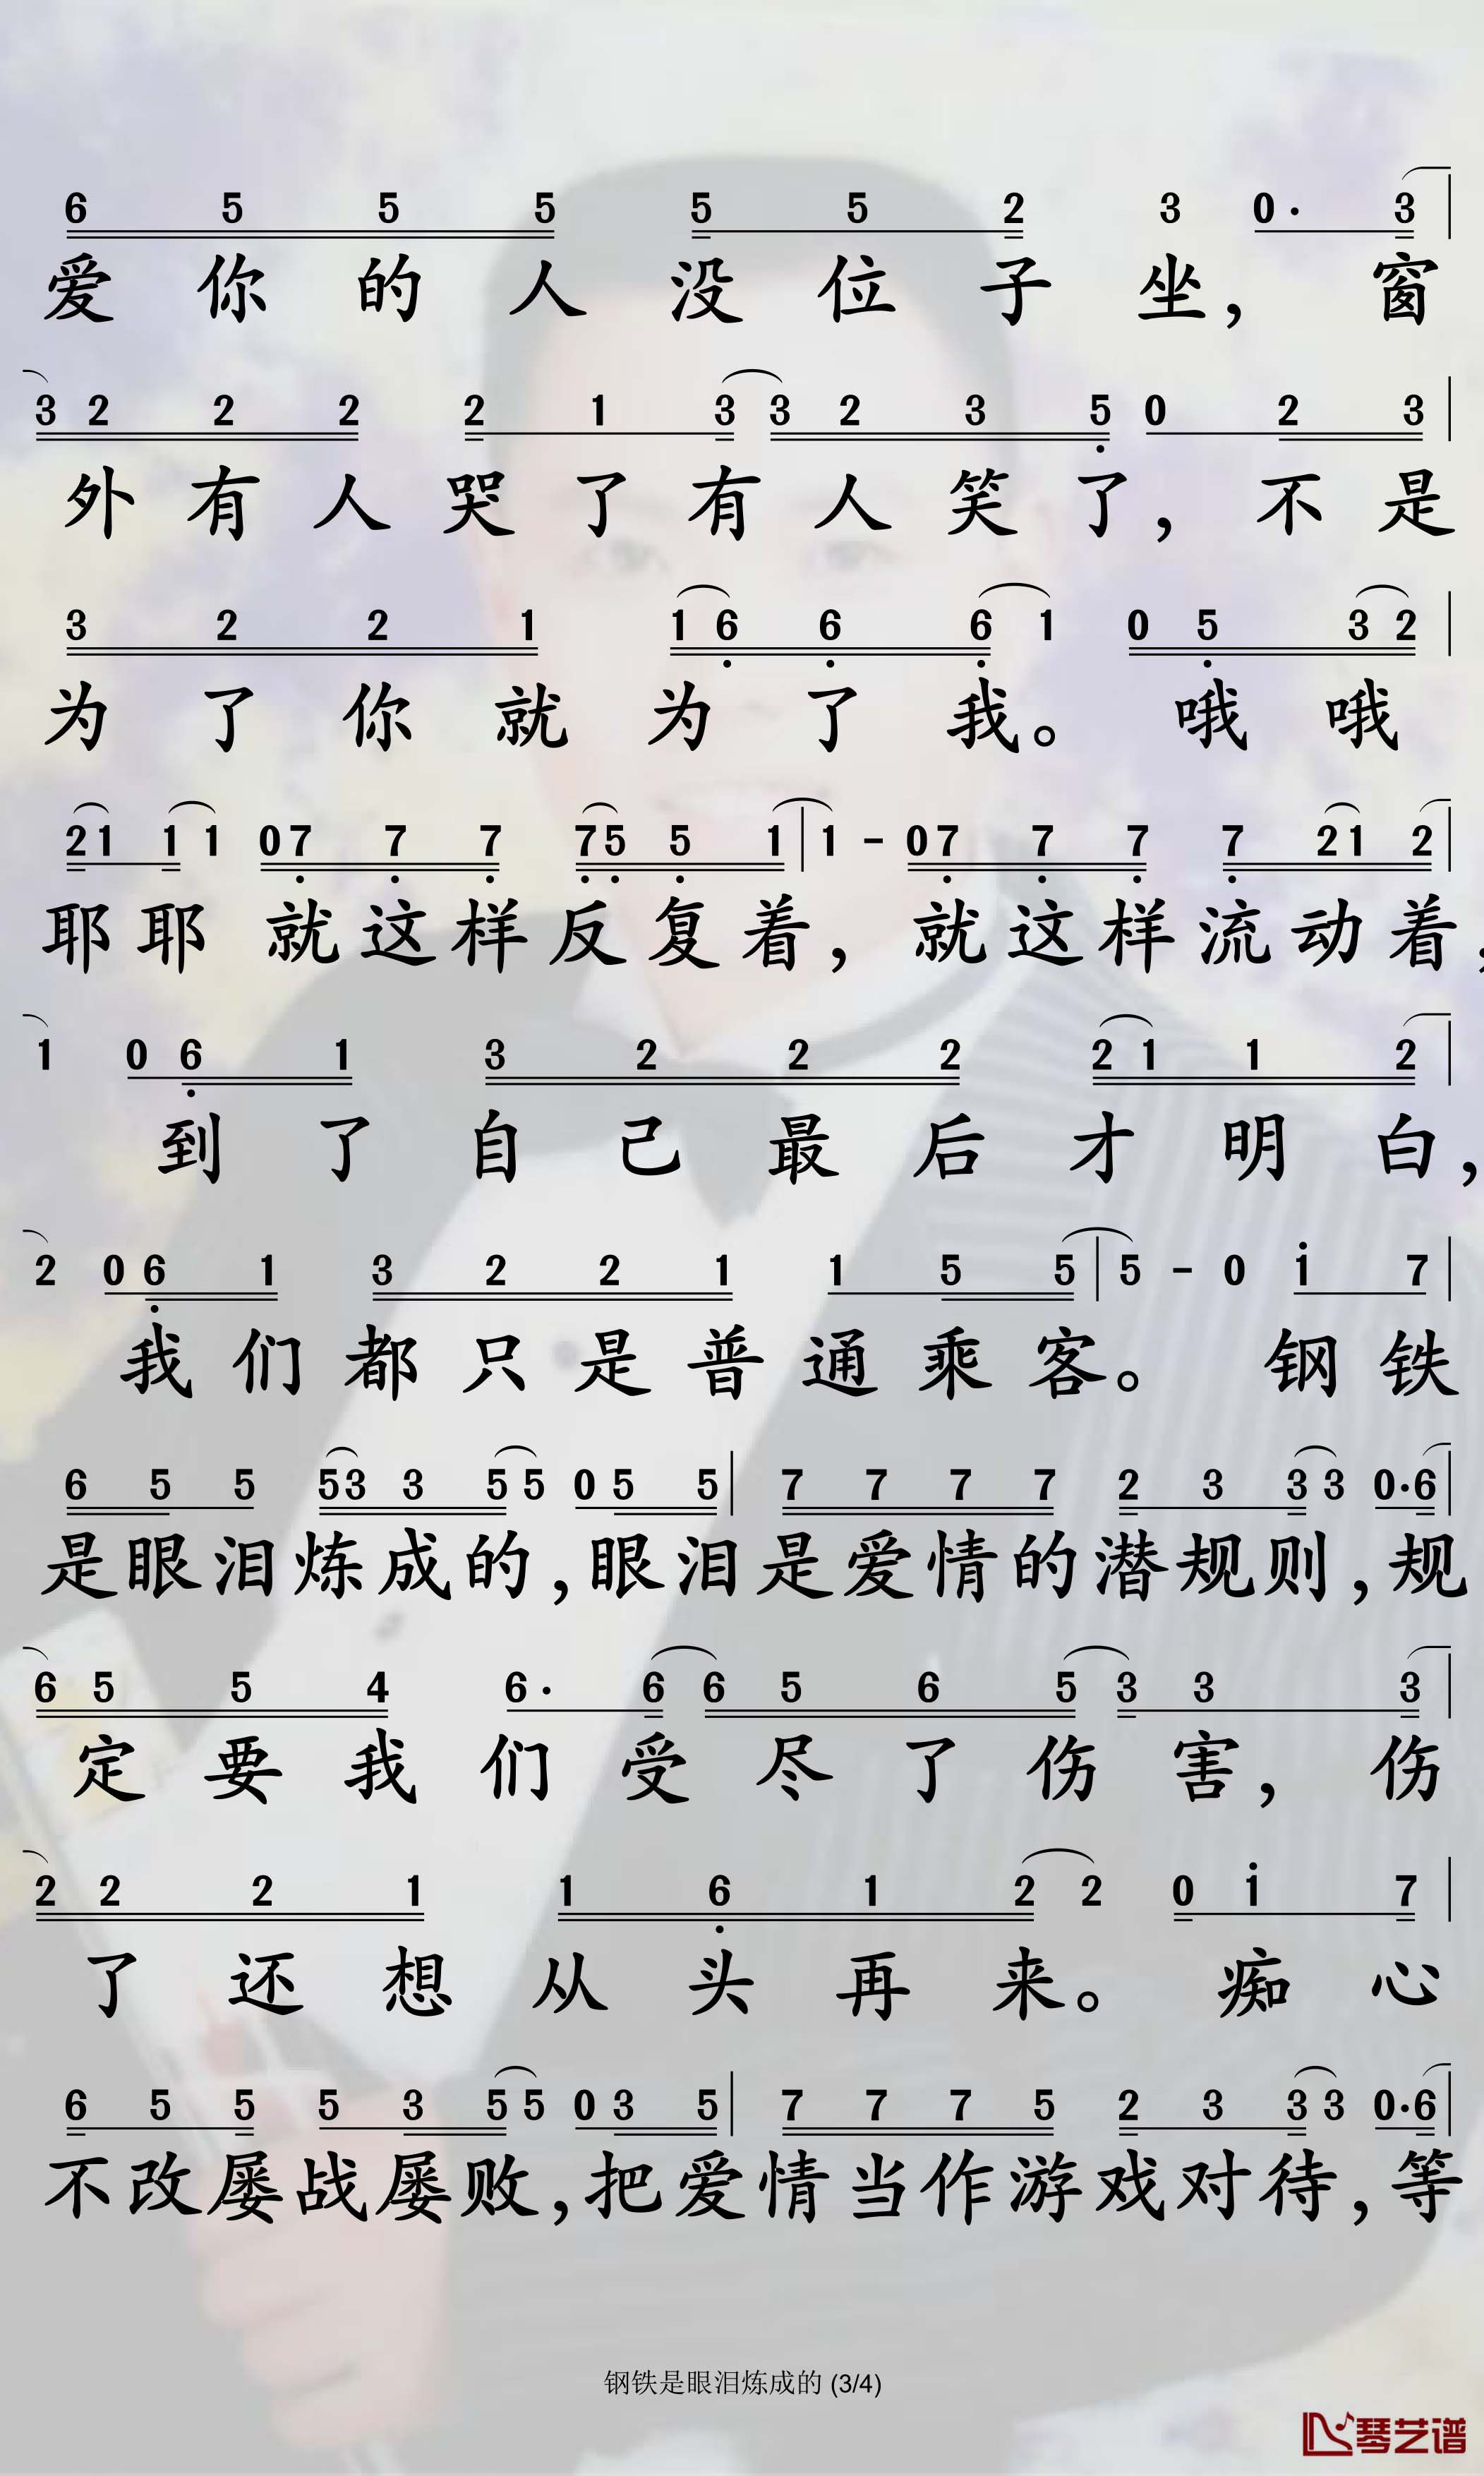 6 5 5 5 5 5 2 3 0· 3
爱你的人没位子坐，窗
3 2 2 2 2 1 3 3 2 3 5 0 2 3
外有人哭了有人笑了，不是
3 2 2 1 1 6 6 6 1 0 5 3 2
为了你就为了我。哦哦
2 1 1 1 0 7 7 7 7 5 5 1 | 1 - 0 7 7 7 7 2 1 2
耶耶 就这样反复着，就这样流动着，
1 0 6 1 3 2 2 2 2 1 1 2
到了自己最后才明白，
2 0 6 1 3 2 2 1 1 5 5 | 5 - 0 i 7
我们都只是普通乘客。钢铁
6 5 5 5 3 3 5 5 0 5 5 | 7 7 7 7 2 3 3 3 0· 6
是眼泪炼成的，眼泪是爱情的潜规则，规
6 5 5 4 6· 6 6 5 6 5 3 3 3
定要我们受尽了伤害，伤
2 2 2 1 1 6 1 2 2 0 i 7
了还想从头再来。痴心
6 5 5 5 3 5 5 0 3 5 | 7 7 7 5 2 3 3 3 0· 6
不改屡战屡败，把爱情当作游戏对待，等
钢铁是眼泪炼成的 (3/4)
琴艺谱